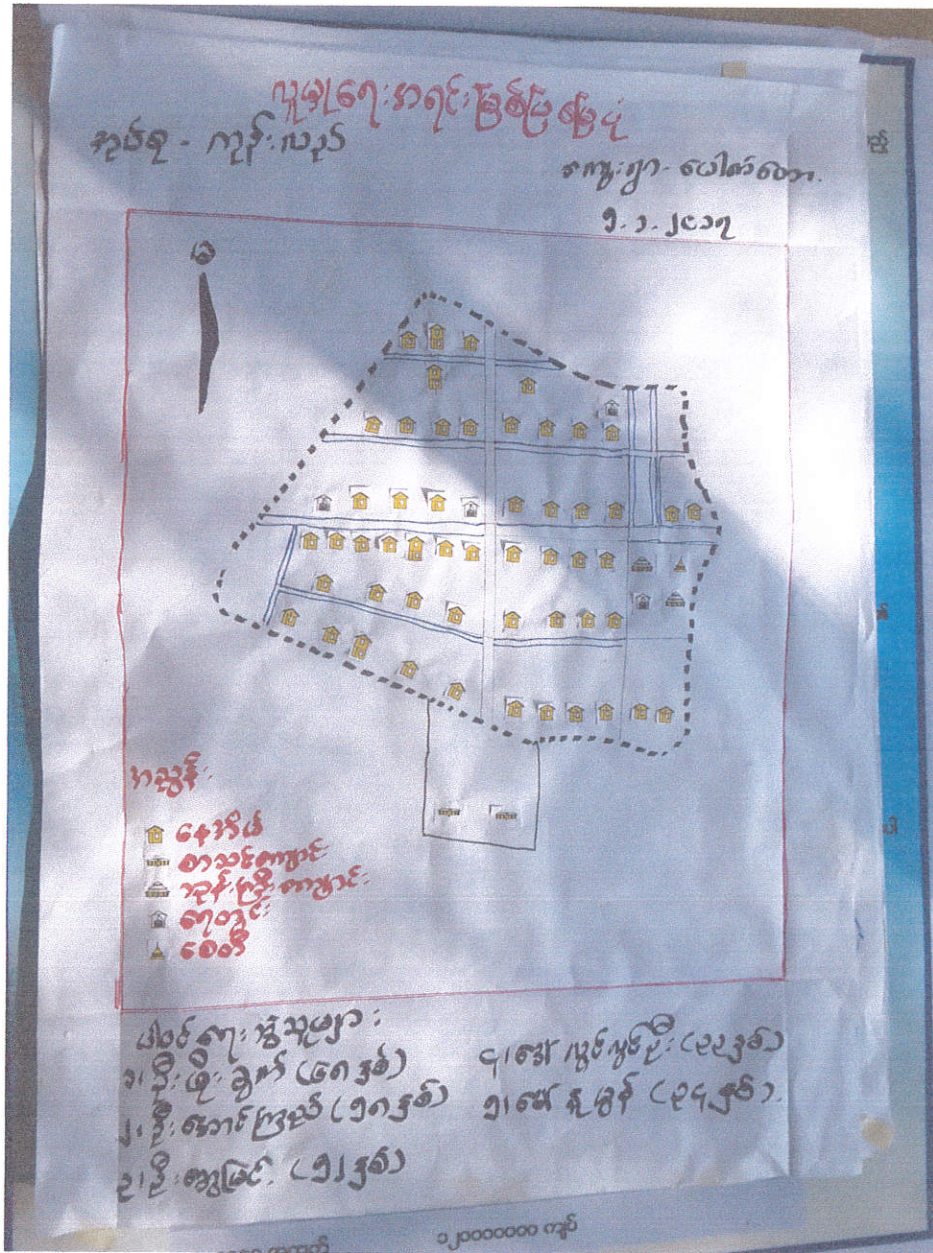 လူမှုရေးအရင်းအမြစ်ပြမြေပုံ
အုပ်စု - ကုန်းလည်
ကျေးရွာ - ပေါက်တော
၅.၁.၂၀၁၇
အညွှန်း
နေအိမ်
စာသင်ကျောင်း
ဘုန်းကြီးကျောင်း
ရေတွင်း
စေတီ
ပါဝင်ရေးဆွဲသူများ
၁၊ ဦးဖိုးခွက် (၆၈ နှစ်)
၂၊ ဦးအောင်ကြည် (၅၈ နှစ်)
၃၊ ဦးကျော်မြင့် (၅၂ နှစ်)
၄၊ ဒေါ်လွင်လွင်ဦး (၃၃ နှစ်)
၅၊ ဒေါ်နွဲ့နွန် (၃၄ နှစ်)
၁၂၀၀၀၀၀၀၀ ကျပ်